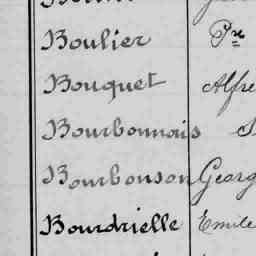 Boulier Pre
Bouquet Alfre
Bourbonnais S
Bourbonson Georg
Bourdrielle Emile